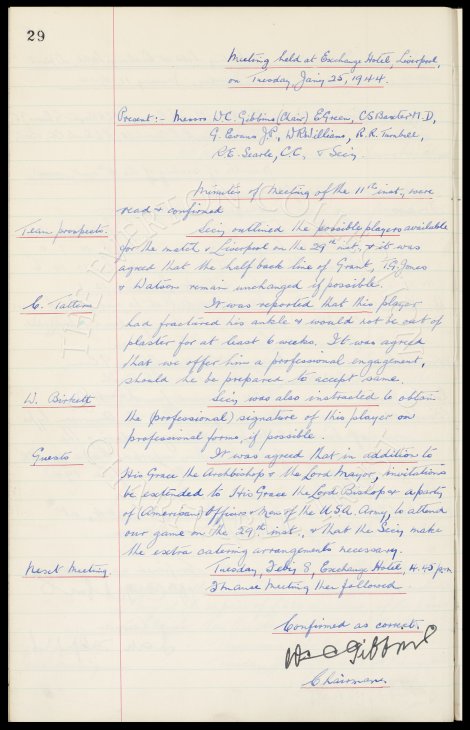 29
Meeting held at Exchange Hotel, Liverpool,
on Tuesday Jan'y 25, 1944.
Present:- Messrs W.C. Gibbins, (Chair) E. Green, C.S. Baxter M.D,
G. Evans J.P., W.R. Williams, R.R. Turnbull,
R.E. Searle, C.C., & Sec'y.
Minutes of Meeting of the 11th inst., were
read & confirmed
Team prospects.
Sec'y outlined the possible players available
for the match v Liverpool on the 29th inst, & it was
agreed that the half back line of Grant, T.G. Jones
& Watson remain unchanged if possible.
C. Tattum
It was reported that this player
had fractured his ankle & would not be out of
plaster for at least 6 weeks. It was agreed
that we offer him a professional engagement,
should he be prepared to accept same.
W. Birkett
Sec'y was also instructed to obtain
the (professional) signature of this player on
professional forms, if possible.
Guests
It was agreed that in addition to
His Grace the Archbishop & the Lord Mayor, invitations
be extended to His Grace the Lord Bishop & a party
of (American) Officers & Men of the U.S.A. Army, to attend
our game on the 29th inst., & that the Sec'y make
the extra catering arrangements necessary.
Next Meeting.
Tuesday, Feb'y 8, Exchange Hotel, 4.45 p.m.
Finance Meeting then followed.
Confirmed as correct.
W C Gibbins
Chairman